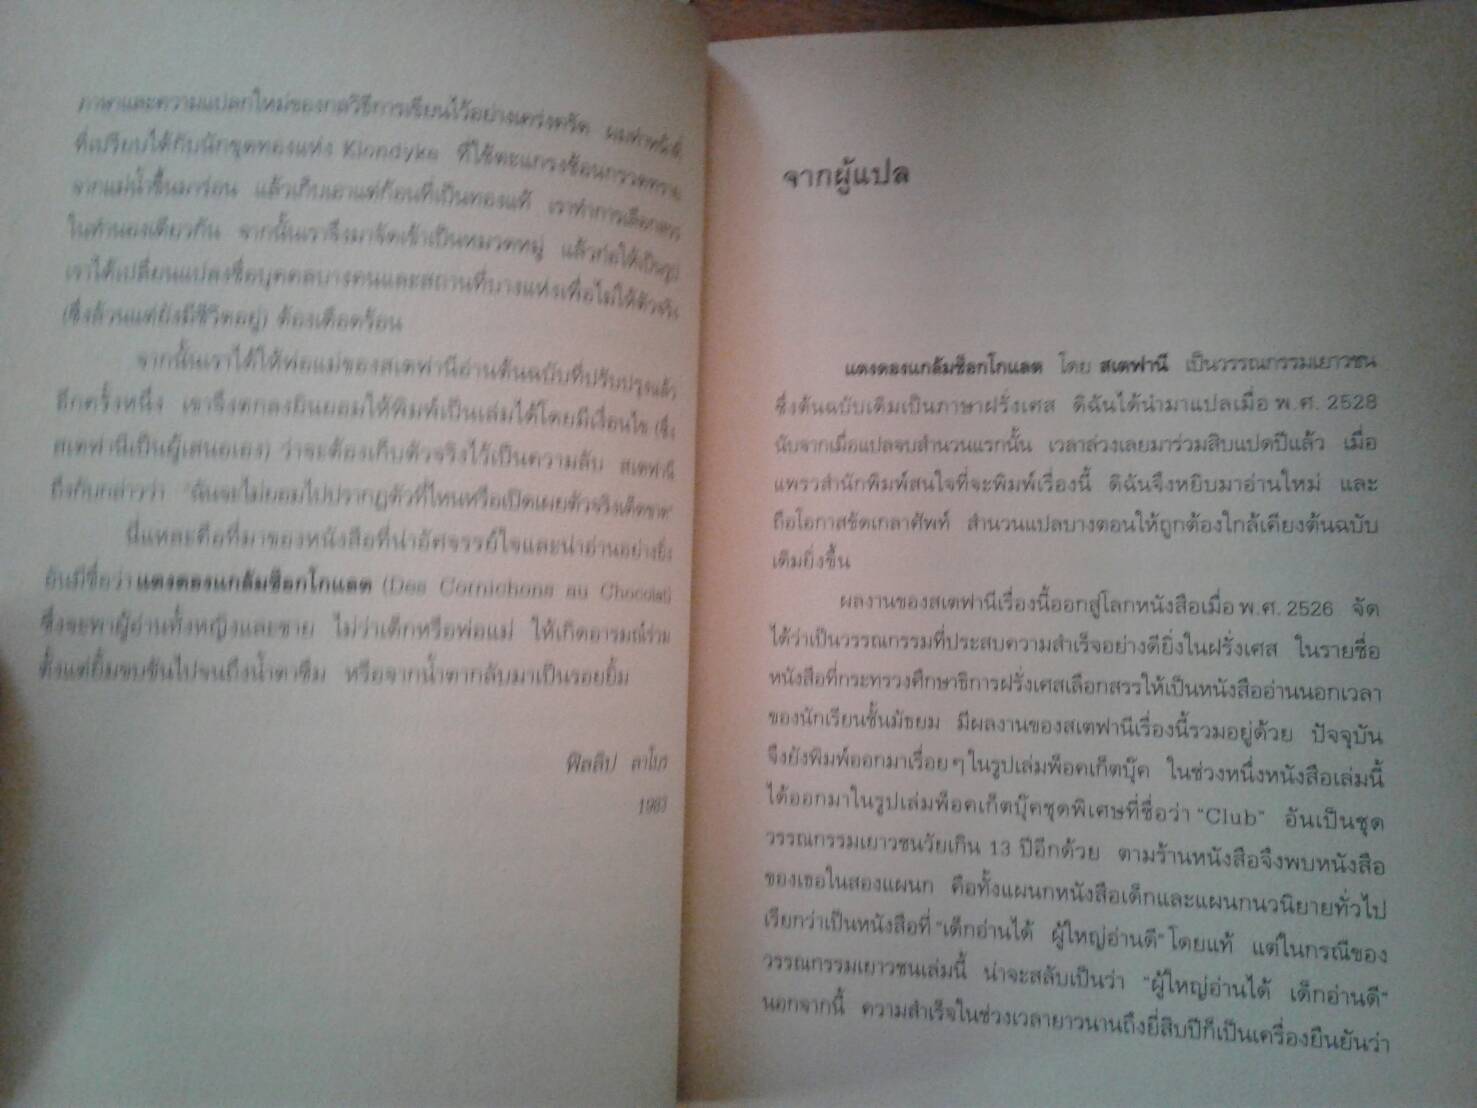 ภาษาและความแปลกใหม่ของกลวิธีการเขียนไว้อย่างเคร่งครัด ผมทำหน้าที่
ที่เปรียบได้กับนักขุดทองแห่ง Klondyke ที่ใช้ตะแกรงช้อนกรวดทราย
จากแม่น้ำขึ้นมาร่อน แล้วเก็บเอาแต่ก้อนที่เป็นทองแท้ เราทำการเลือกสรร
ในทำนองเดียวกัน จากนั้นเราจึงมาจัดเข้าเป็นหมวดหมู่ แล้วก่อให้เป็นรูป
เราได้เปลี่ยนแปลงชื่อบุคคลบางคนและสถานที่บางแห่งเพื่อไม่ให้ตัวจริง
(ซึ่งล้วนแต่ยังมีชีวิตอยู่) ต้องเดือดร้อน
จากนั้นเราได้ให้พ่อแม่ของสเตฟานีอ่านต้นฉบับที่ปรับปรุงแล้ว
อีกครั้งหนึ่ง เขาจึงตกลงยินยอมให้พิมพ์เป็นเล่มได้โดยมีเงื่อนไข (ซึ่ง
สเตฟานีเป็นผู้เสนอเอง) ว่าจะต้องเก็บตัวจริงไว้เป็นความลับ สเตฟานี
ถึงกับกล่าวว่า "ฉันจะไม่ยอมไปปรากฏตัวที่ไหนหรือเปิดเผยตัวจริงเด็ดขาด"
นี่แหละคือที่มาของหนังสือที่น่าอัศจรรย์ใจและน่าอ่านอย่างยิ่ง
อันมีชื่อว่า แตงดองแกล้มช็อกโกแลต (Des Cornichons au Chocolat)
ซึ่งจะพาผู้อ่านทั้งหญิงและชาย ไม่ว่าเด็กหรือพ่อแม่ ให้เกิดอารมณ์ร่วม
ตั้งแต่ยิ้มขบขันไปจนถึงน้ำตาซึม หรือจากน้ำตากลับมาเป็นรอยยิ้ม
ฟิลลิป ลาโบร
1983
จากผู้แปล
แตงดองแกล้มช็อกโกแลต โดย สเตฟานี เป็นวรรณกรรมเยาวชน
ซึ่งต้นฉบับเดิมเป็นภาษาฝรั่งเศส ดิฉันได้นำมาแปลเมื่อ พ.ศ. 2528
นับจากเมื่อแปลจบสำนวนแรกนั้น เวลาล่วงเลยมาร่วมสิบแปดปีแล้ว เมื่อ
แพรวสำนักพิมพ์สนใจที่จะพิมพ์เรื่องนี้ ดิฉันจึงหยิบมาอ่านใหม่ และ
ถือโอกาสขัดเกลาศัพท์ สำนวนแปลบางตอนให้ถูกต้องใกล้เคียงต้นฉบับ
เดิมยิ่งขึ้น
ผลงานของสเตฟานีเรื่องนี้ออกสู่โลกหนังสือเมื่อ พ.ศ. 2526 จัด
ได้ว่าเป็นวรรณกรรมที่ประสบความสำเร็จอย่างดียิ่งในฝรั่งเศส ในรายชื่อ
หนังสือที่กระทรวงศึกษาธิการฝรั่งเศสเลือกสรรให้เป็นหนังสืออ่านนอกเวลา
ของนักเรียนชั้นมัธยม มีผลงานของสเตฟานีเรื่องนี้รวมอยู่ด้วย ปัจจุบัน
จึงยังพิมพ์ออกมาเรื่อยๆ ในรูปเล่มพ็อคเก็ตบุ๊ค ในช่วงหนึ่งหนังสือเล่มนี้
ได้ออกมาในรูปเล่มพ็อคเก็ตบุ๊คชุดพิเศษที่ชื่อว่า "Club" อันเป็นชุด
วรรณกรรมเยาวชนวัยเกิน 13 ปีอีกด้วย ตามร้านหนังสือจึงพบหนังสือ
ของเธอในสองแผนก คือทั้งแผนกหนังสือเด็กและแผนกนวนิยายทั่วไป
เรียกว่าเป็นหนังสือที่ "เด็กอ่านได้ ผู้ใหญ่อ่านดี" โดยแท้ แต่ในกรณีของ
วรรณกรรมเยาวชนเล่มนี้ น่าจะสลับเป็นว่า "ผู้ใหญ่อ่านได้ เด็กอ่านดี"
นอกจากนี้ ความสำเร็จในช่วงเวลายาวนานถึงยี่สิบปีก็เป็นเครื่องยืนยันว่า